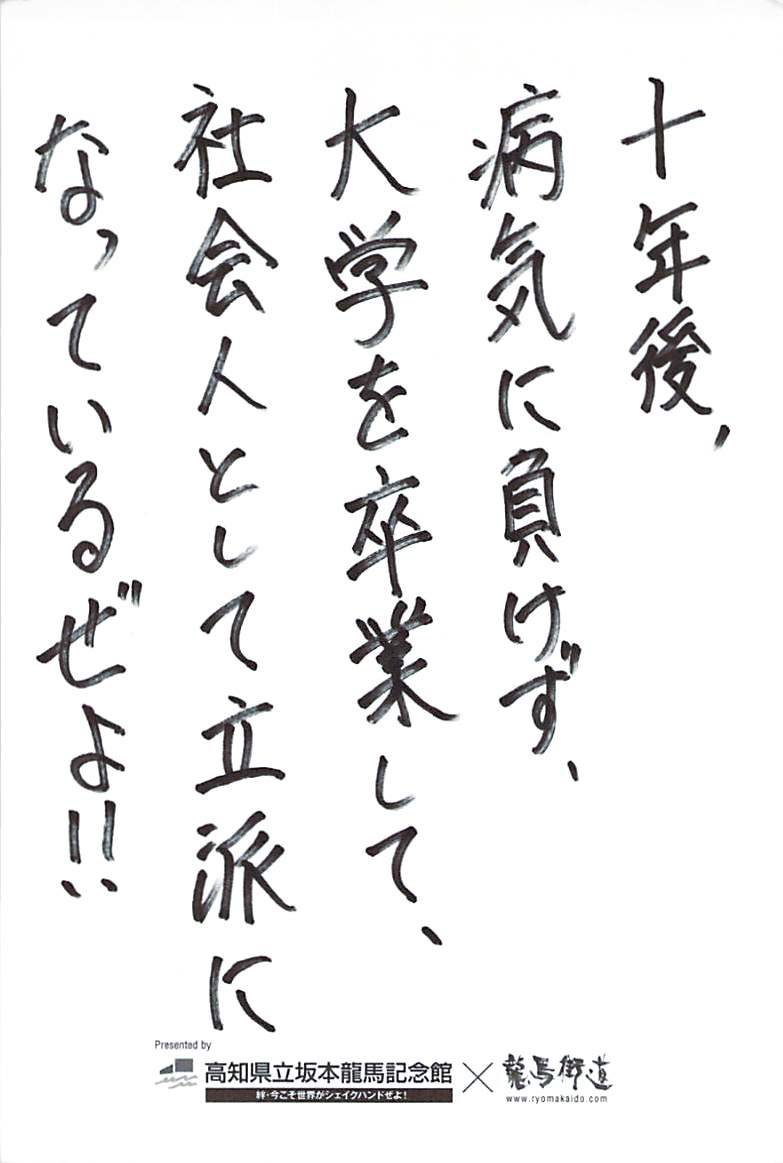 十年後、
病気に負けず、
大学を卒業して、
社会人として立派に
なっているぜよ!!
Presented by
高知県立坂本龍馬記念館
絆・今こそ世界がシェイクハンドぜよ!
×
龍馬街道
www.ryomakaido.com